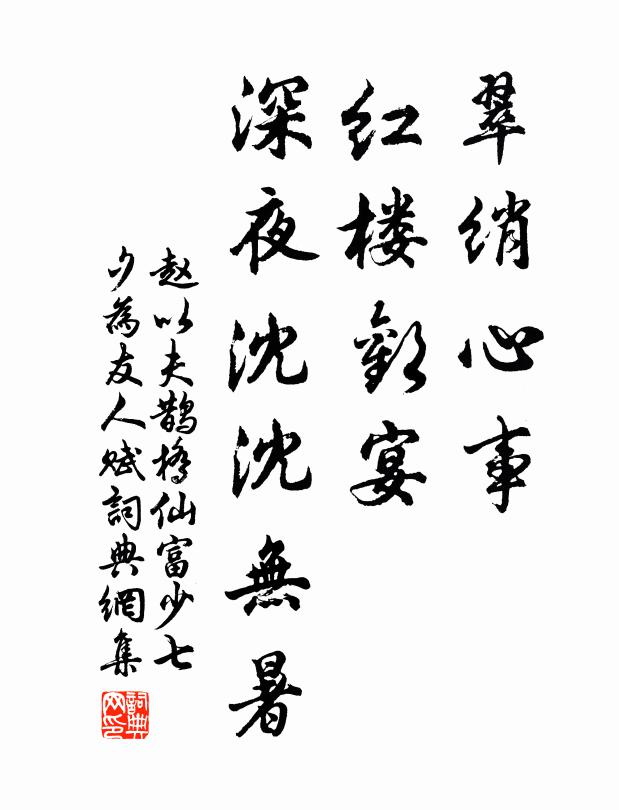 翠绡心事
红楼歡宴
深夜沈沈無暑
赵以夫鹊橋仙富沙七
夕為友人赋詞典網集
詞典网印